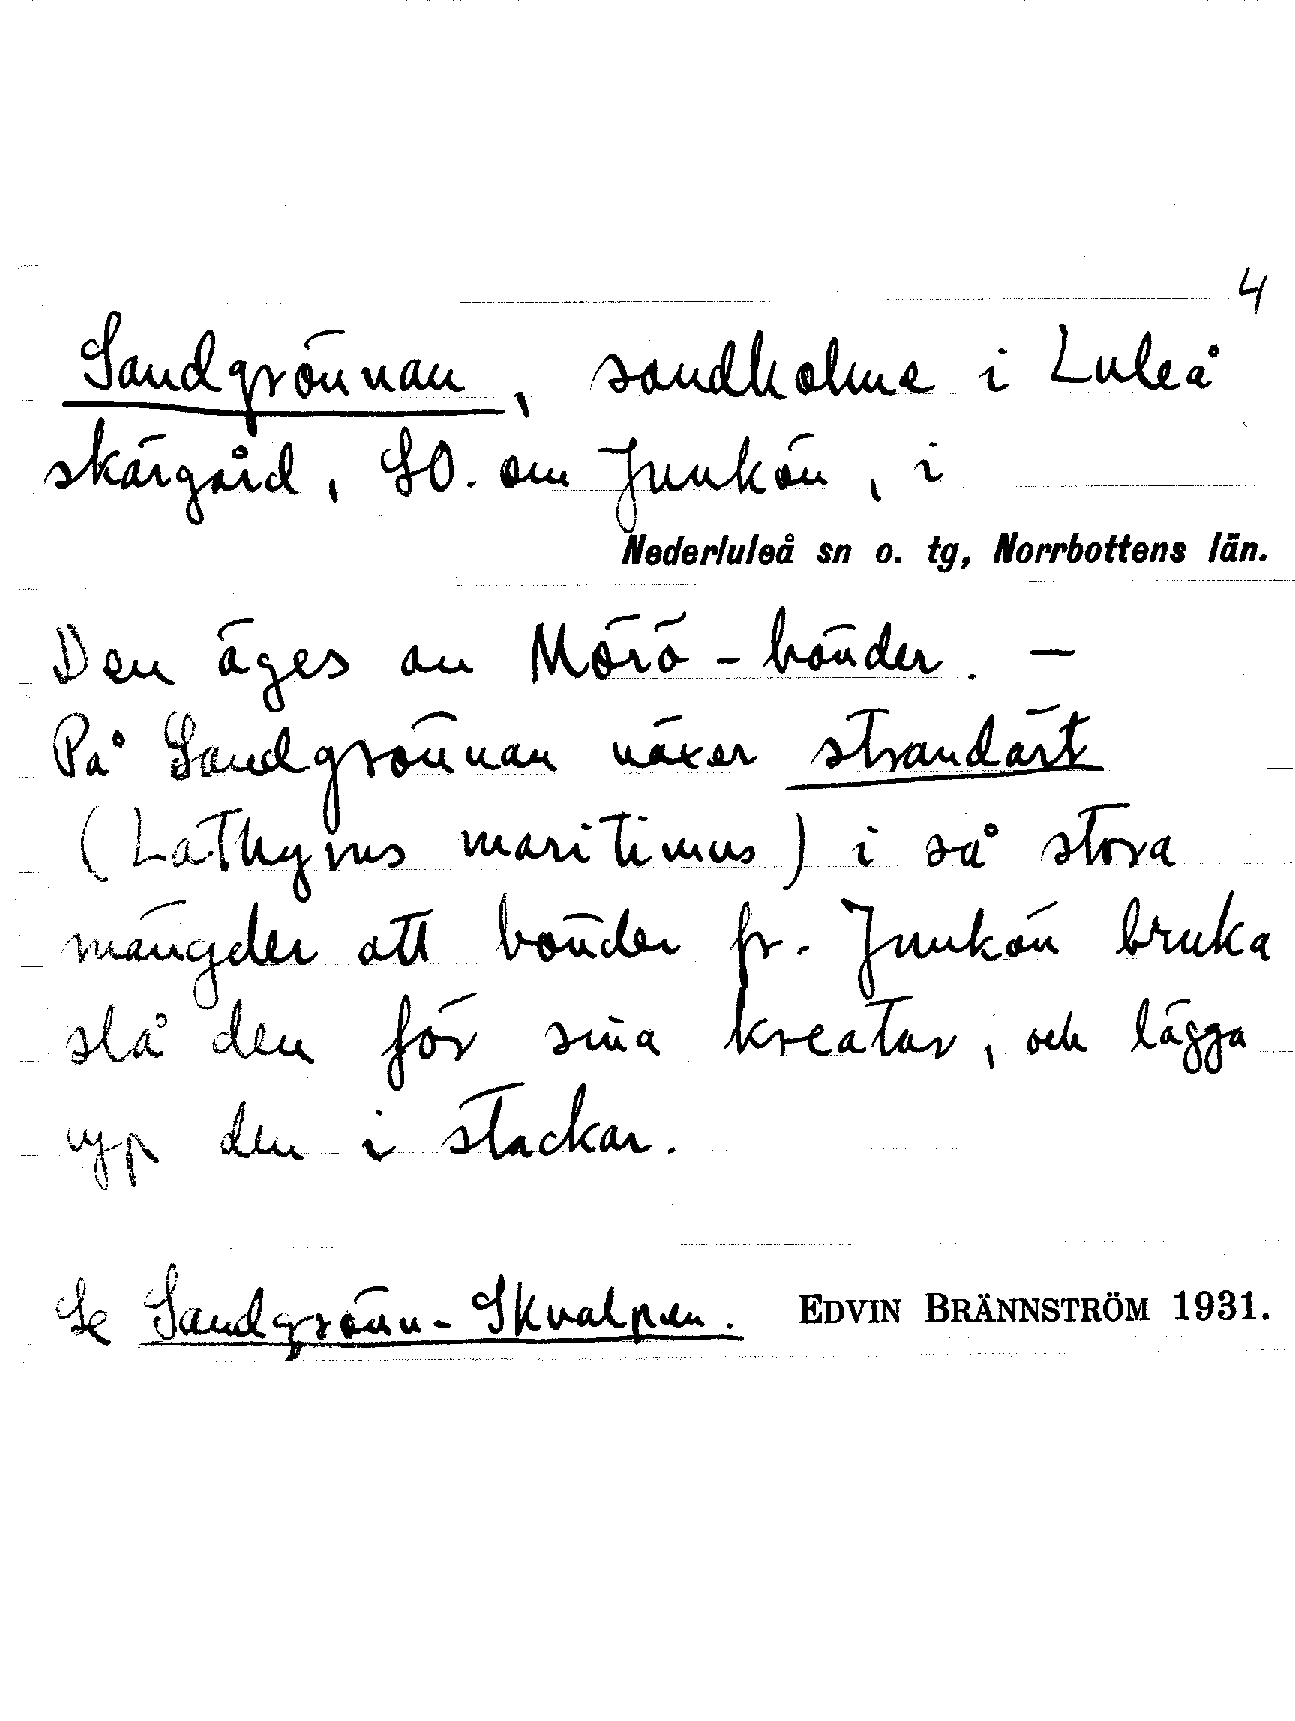 4
Sandgrönnan, sandholme i Luleå
skärgård, SO. om Junkön, i
Nederluleå sn o. tg, Norrbottens län.
Den äges av Mörö-bönder. —
På Sandgrönnan växer strandärt
(Lathyrus maritimus) i så stora
mängder att bönder fr. Junkön bruka
slå den för sina kreatur, och lägga
upp den i stackar.
Se Sandgrönn-Skvalpen. EDVIN BRÄNNSTRÖM 1931.